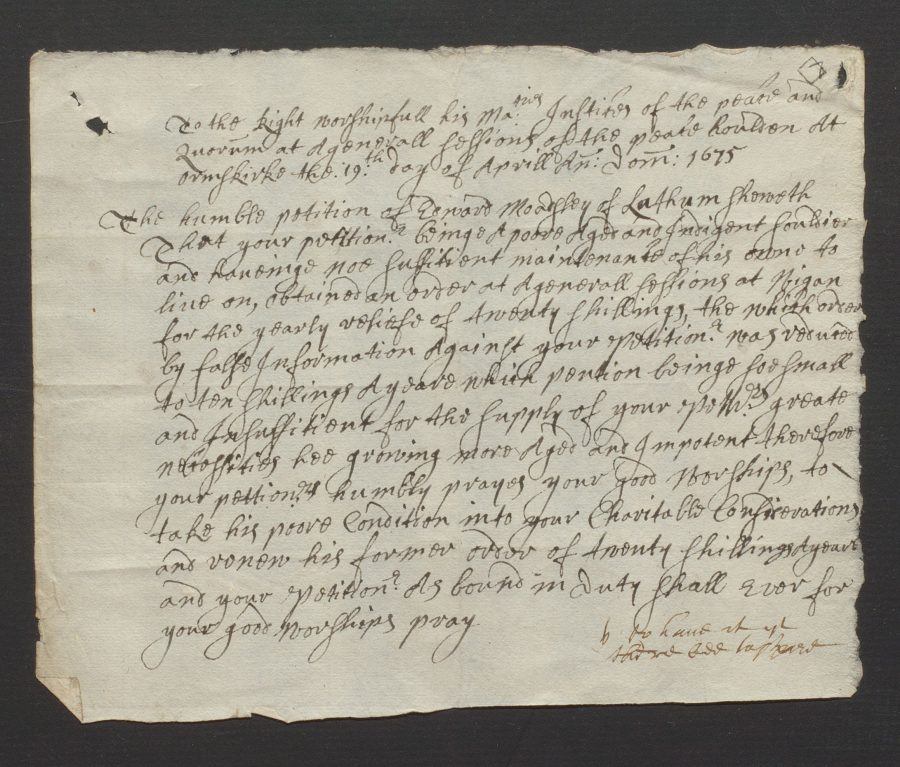 To the Right worshipfull his Ma:ties Justices of the peace and
Quorum at A generall sessions of the peace houlden At
Ormskirke the: 19:th day of Aprill An:o Dom: 1675
The humble petition of Edward Moadsley of Lathum sheweth
That your petition:r beinge A poore Aged and Indigent souldier
and haveinge noe suffitient maintenance of his owne to
live on, obtained an order at A generall sessions at Wigan
for the yearly reliefe of twenty shillings, the which order
by false Information Against your Petition:r was reduced
to ten shillings A yeare which pention beinge soe small
and Insuffitient for the supply of your Pet:rs greate
necessities hee growing more Aged and Impotent therefore
your pettion:rs humbly prayes your good Worships, to
take his poore Condition into your Charitable Considerations
and renew his former order of twenty shillings A yeare
and your Petition:r As bound in duty shall Ever for
your good Worships pray
to have it yt
there bee